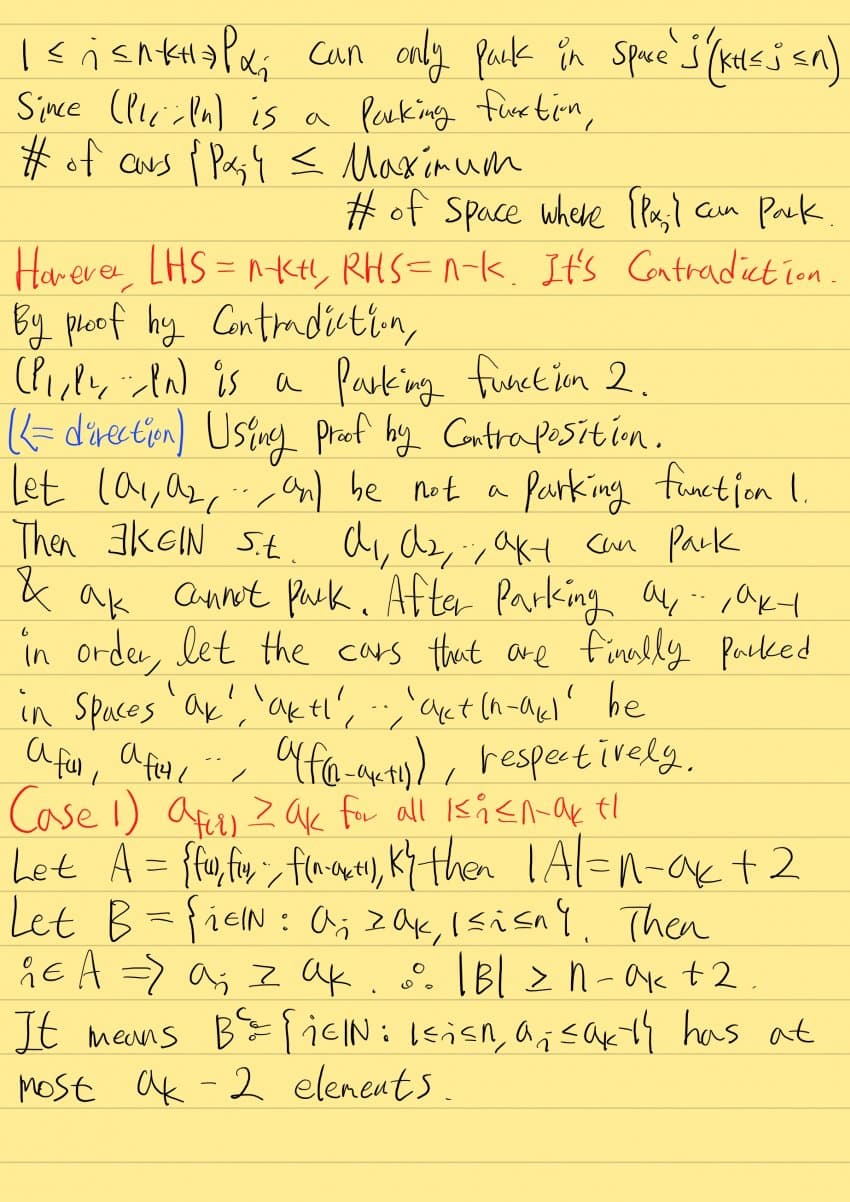 1 ≤ i ≤ n-k+1 ⇒ Pαᵢ can only park in space 'j' (k+1 ≤ j ≤ n)
Since (P1, ‥, Pn) is a Parking function,
# of cars {Pαᵢ} ≤ Maximum
# of space where {Pαᵢ} can park.
However, LHS = n-k+1, RHS = n-k. It's Contradiction.
By proof by Contradiction,
(P1, P2, ‥, Pn) is a Parking function 2.
(<= direction) Using Proof by Contraposition.
Let (a1, a2, ‥, an) be not a Parking function 1.
Then ∃K∈ℕ s.t. a1, a2, ‥, aK-1 can Park
& aK cannot park. After Parking a1, ‥, aK-1
in order, let the cars that are finally parked
in spaces 'aK', 'aK+1', ‥, 'aK+(n-aK)' be
af(1), af(2), ‥, a(f(n-aK+1)), respectively.
Case 1) af(i) ≥ aK for all 1≤i≤n-aK+1
Let A = {f(1), f(2), ‥, f(n-aK+1), K} then |A| = n-aK+2
Let B = {i∈ℕ : aᵢ ≥ aK, 1≤i≤n}. Then
i∈A => aᵢ ≥ aK. ∴ |B| ≥ n-aK+2.
It means Bᶜ = {i∈ℕ : 1≤i≤n, aᵢ≤aK-1} has at
most aK-2 elements.